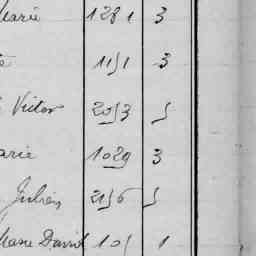 Marie 1281 3
1151 3
Victor 2053 5
Marie 1029 3
Julien 2156 5
David 105 1